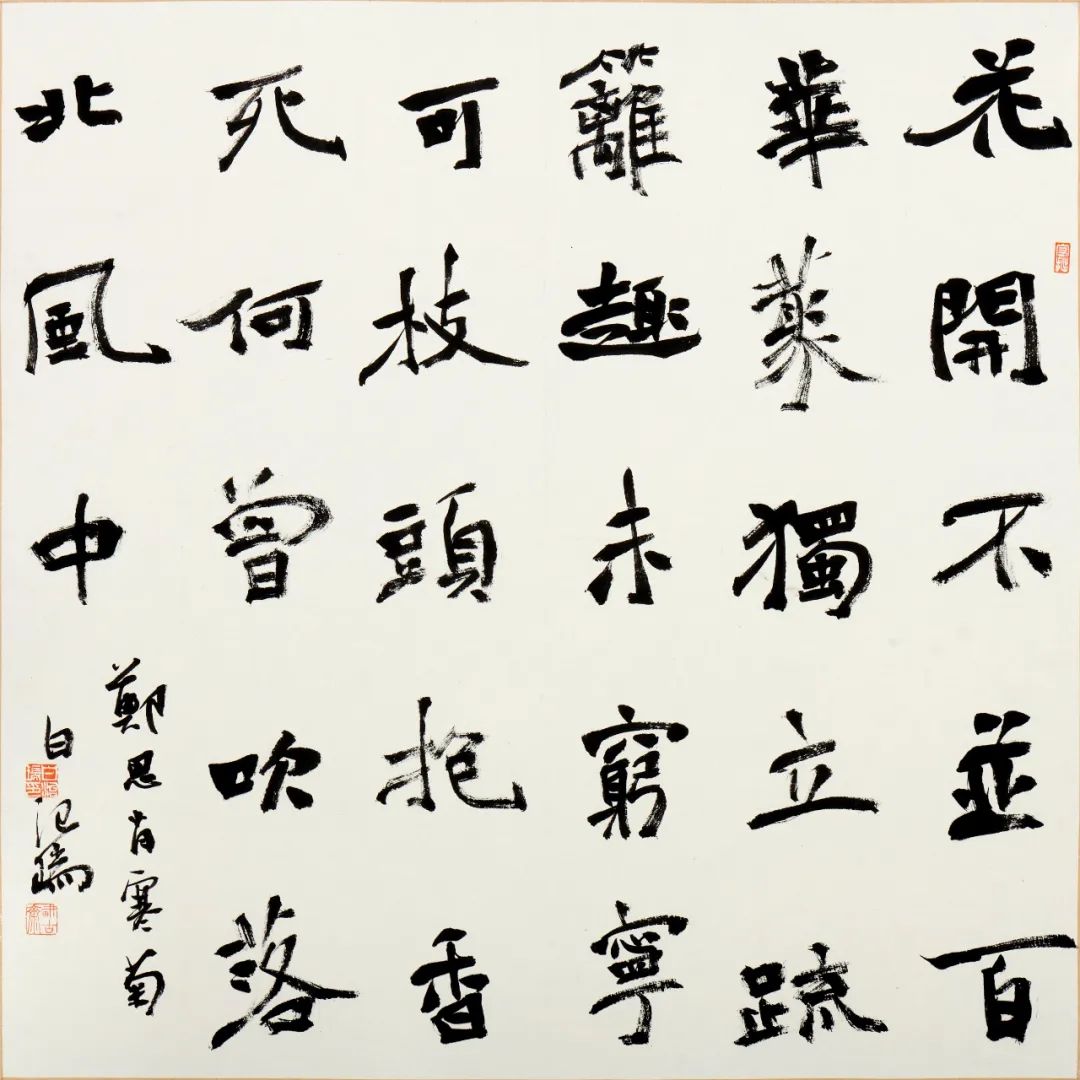 花開不並百
華藂獨立疏
籬趣未窮寧
可枝頭抱香
死何曾吹落
北風中
鄭思肖寒菊
白